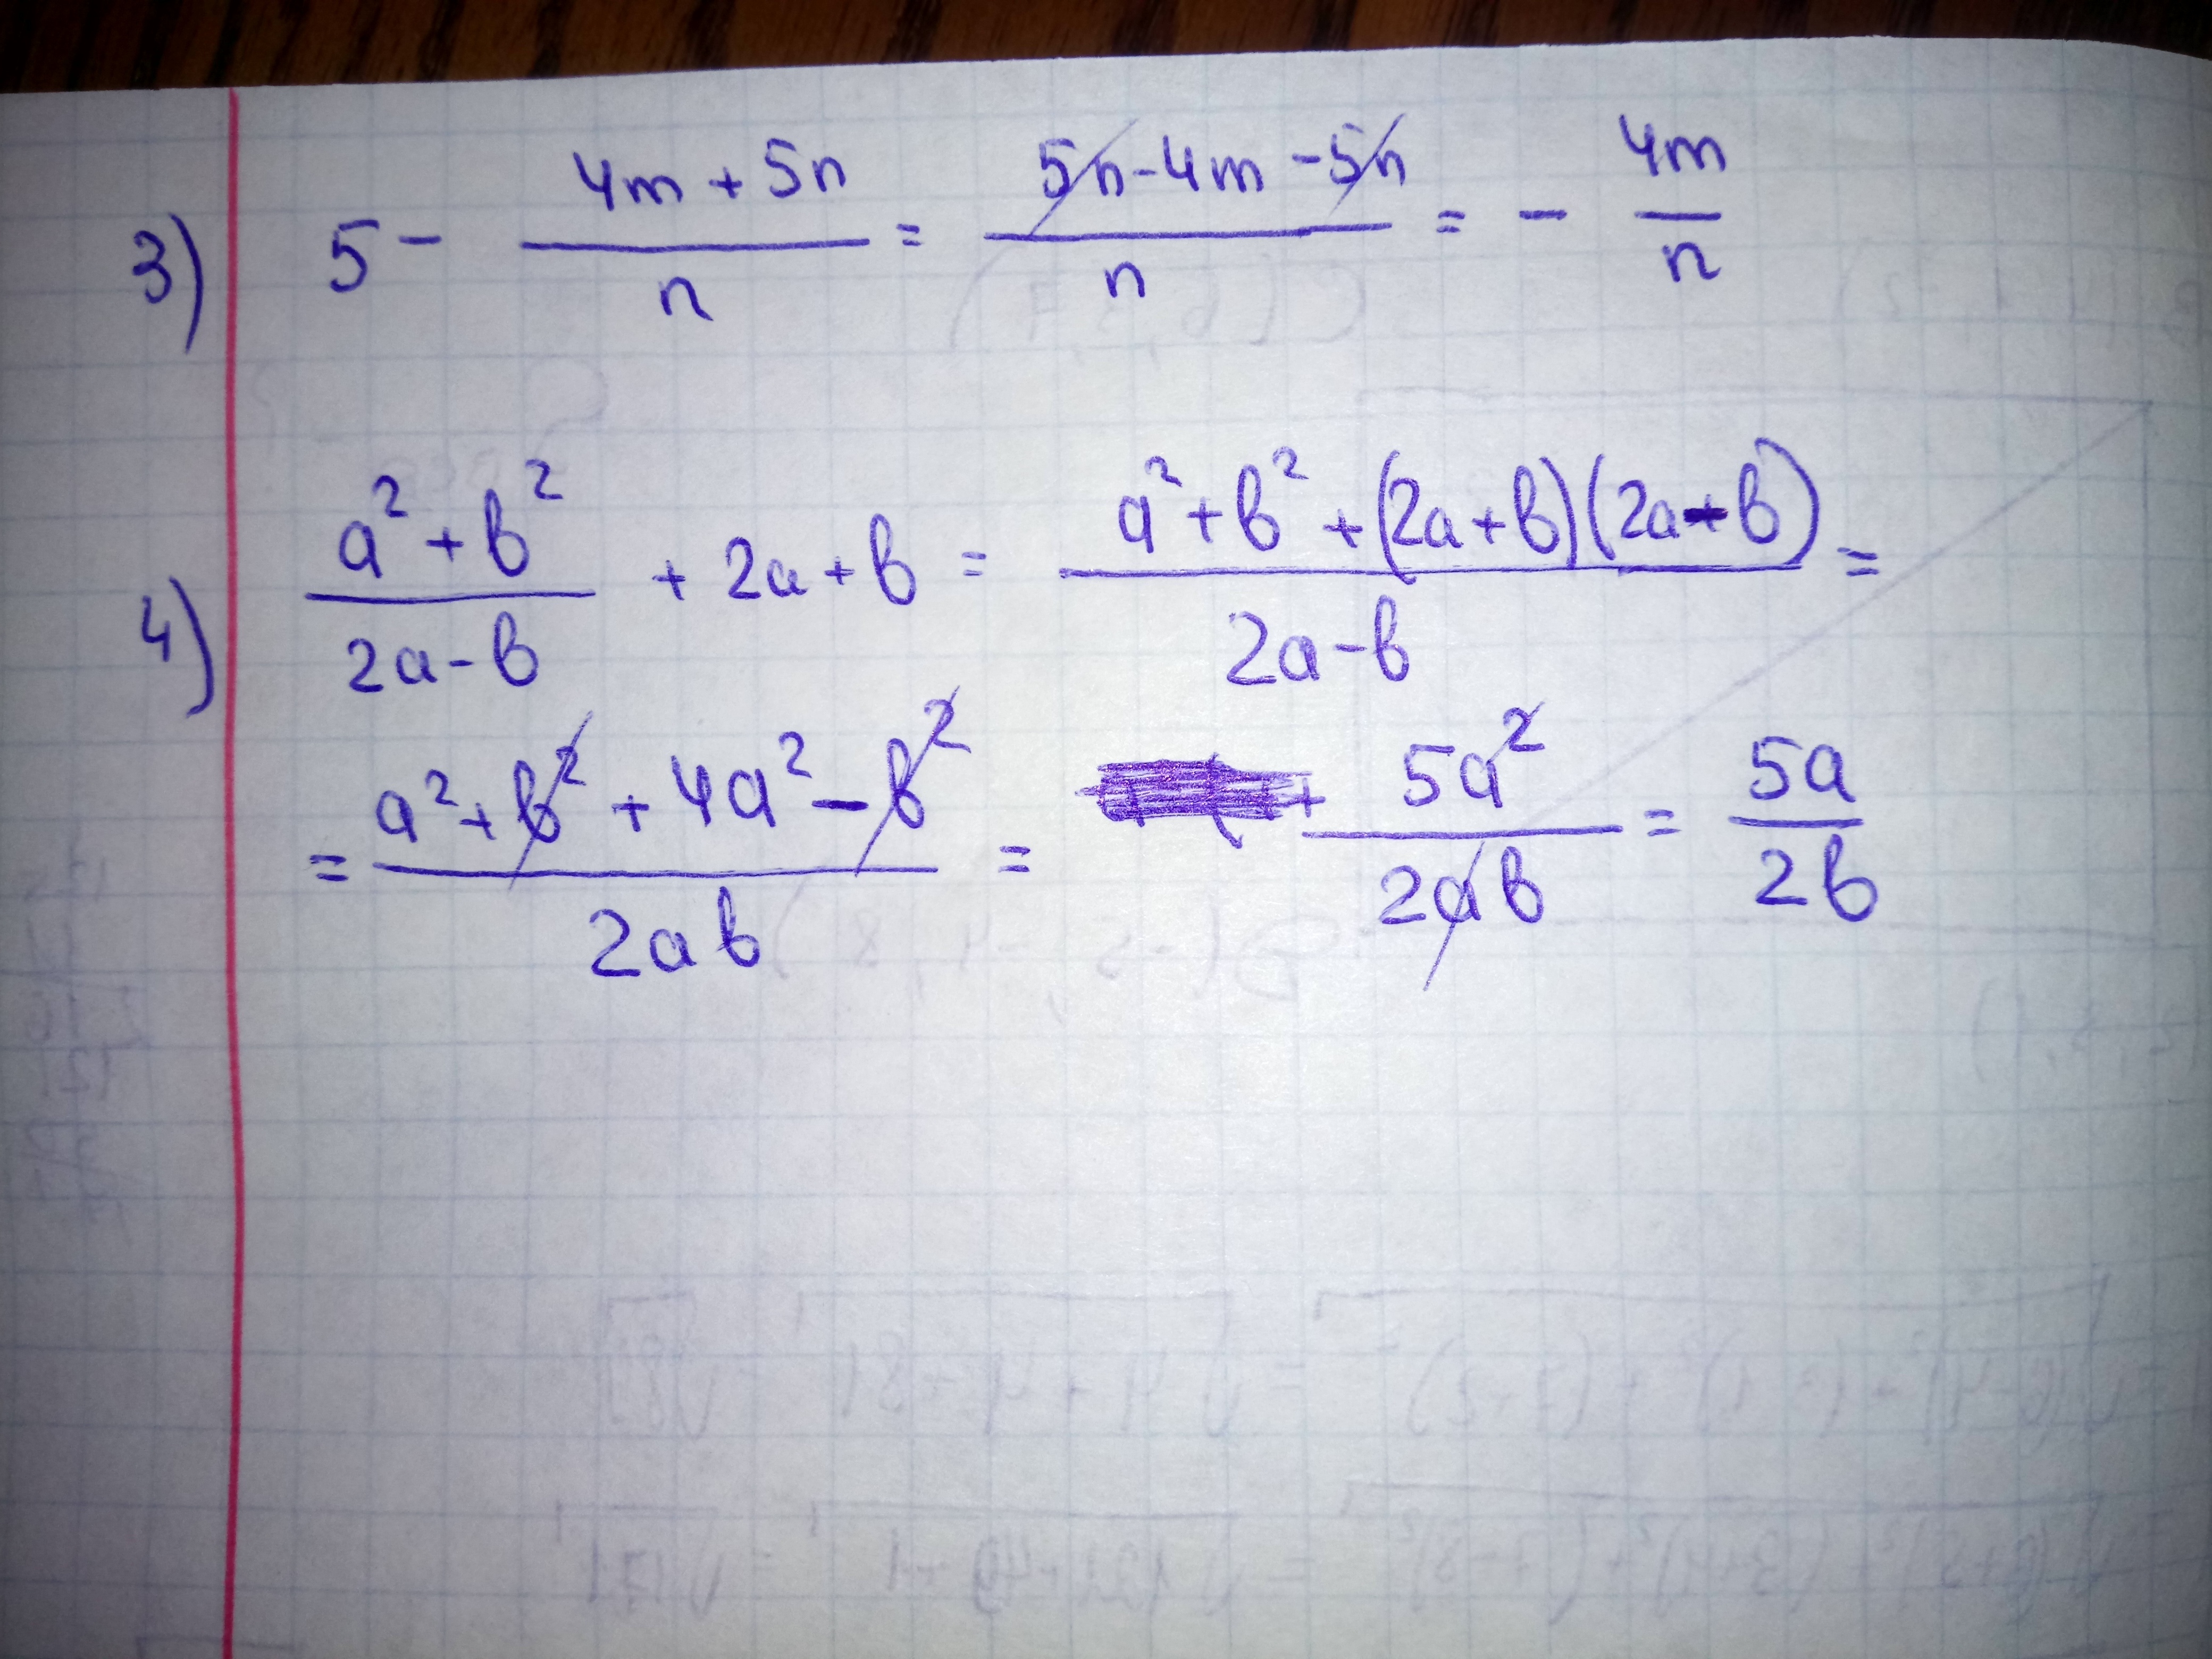 3) 5 - (4m + 5n)/n = (5n - 4m - 5n)/n = - 4m/n
4) (a² + b²)/(2a - b) + 2a + b = (a² + b² + (2a + b)(2a - b))/(2a - b) =
= (a² + b² + 4a² - b²)/(2ab) = 5a²/(2ab) = 5a/(2b)